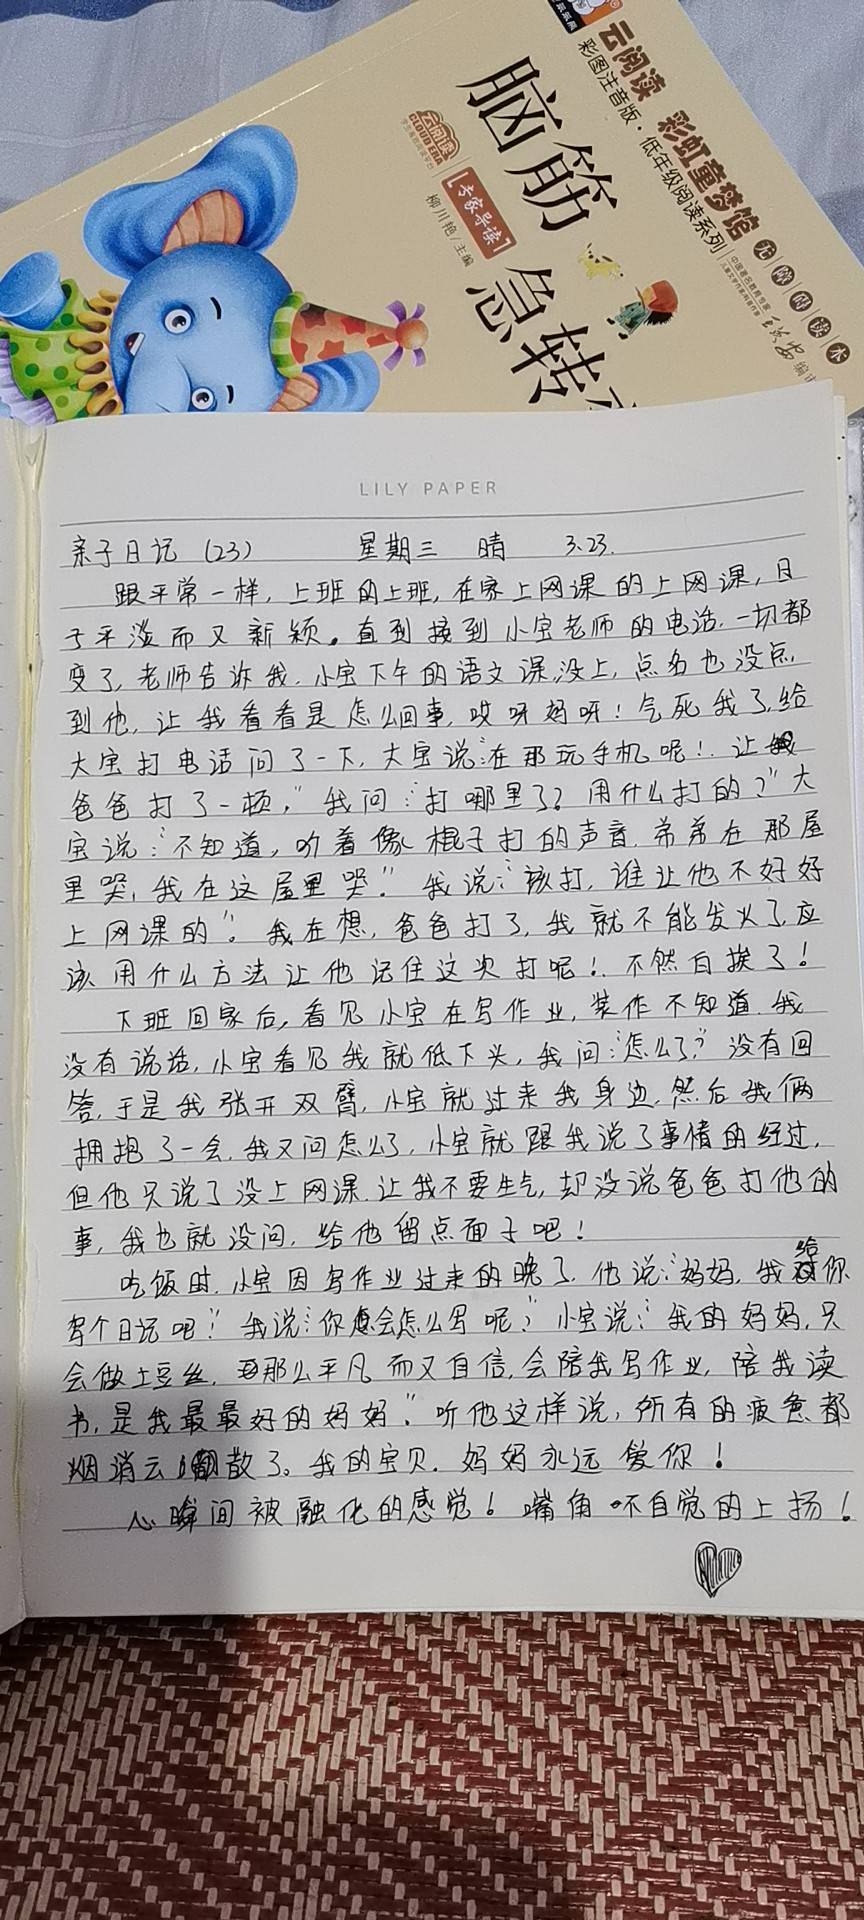 云阅读 彩虹童梦馆
彩图注音版·低年级阅读系列
无障碍读本
脑筋急转
云阅读
CLOUD ERA
专家导读
柳川艳/主编
LILY PAPER
亲子日记 (23) 星期三 晴 3.23.
跟平常一样,上班的上班,在家上网课的上网课,日
子平淡而又新颖。直到接到小宝老师的电话,一切都
变了,老师告诉我,小宝下午的语文课没上,点名也没点
到他,让我看看是怎么回事,哎呀妈呀!气死我了,给
大宝打电话问了一下,大宝说:“在那玩手机呢!让
爸爸打了一顿,”我问:“打哪里了?用什么打的?”大
宝说:“不知道,听着像棍子打的声音,弟弟在那屋
里哭,我在这屋里哭!”我说:“该打,谁让他不好好
上网课的”。我在想,爸爸打了,我就不能发火了,应
该用什么方法让他记住这次打呢!不然白挨了!
下班回家后,看见小宝在写作业,装作不知道,我
没有说话,小宝看见我就低下头,我问:“怎么了?”没有回
答,于是我张开双臂,小宝就过来我身边,然后我俩
拥抱了一会,我又问怎么了,小宝就跟我说了事情的经过,
但他只说了没上网课,让我不要生气,却没说爸爸打他的
事,我也就没问,给他留点面子吧!
吃饭时,小宝因写作业过来的晚了,他说:“妈妈,我给你
写个日记吧!”我说:“你会怎么写呢?”小宝说:“我的妈妈,只
会做土豆丝,那么平凡而又自信,会陪我写作业,陪我读
书,是我最最好的妈妈!”听他这样说,所有的疲惫都
烟消云散了。我的宝贝,妈妈永远爱你!
心瞬间被融化的感觉!嘴角不自觉的上扬!